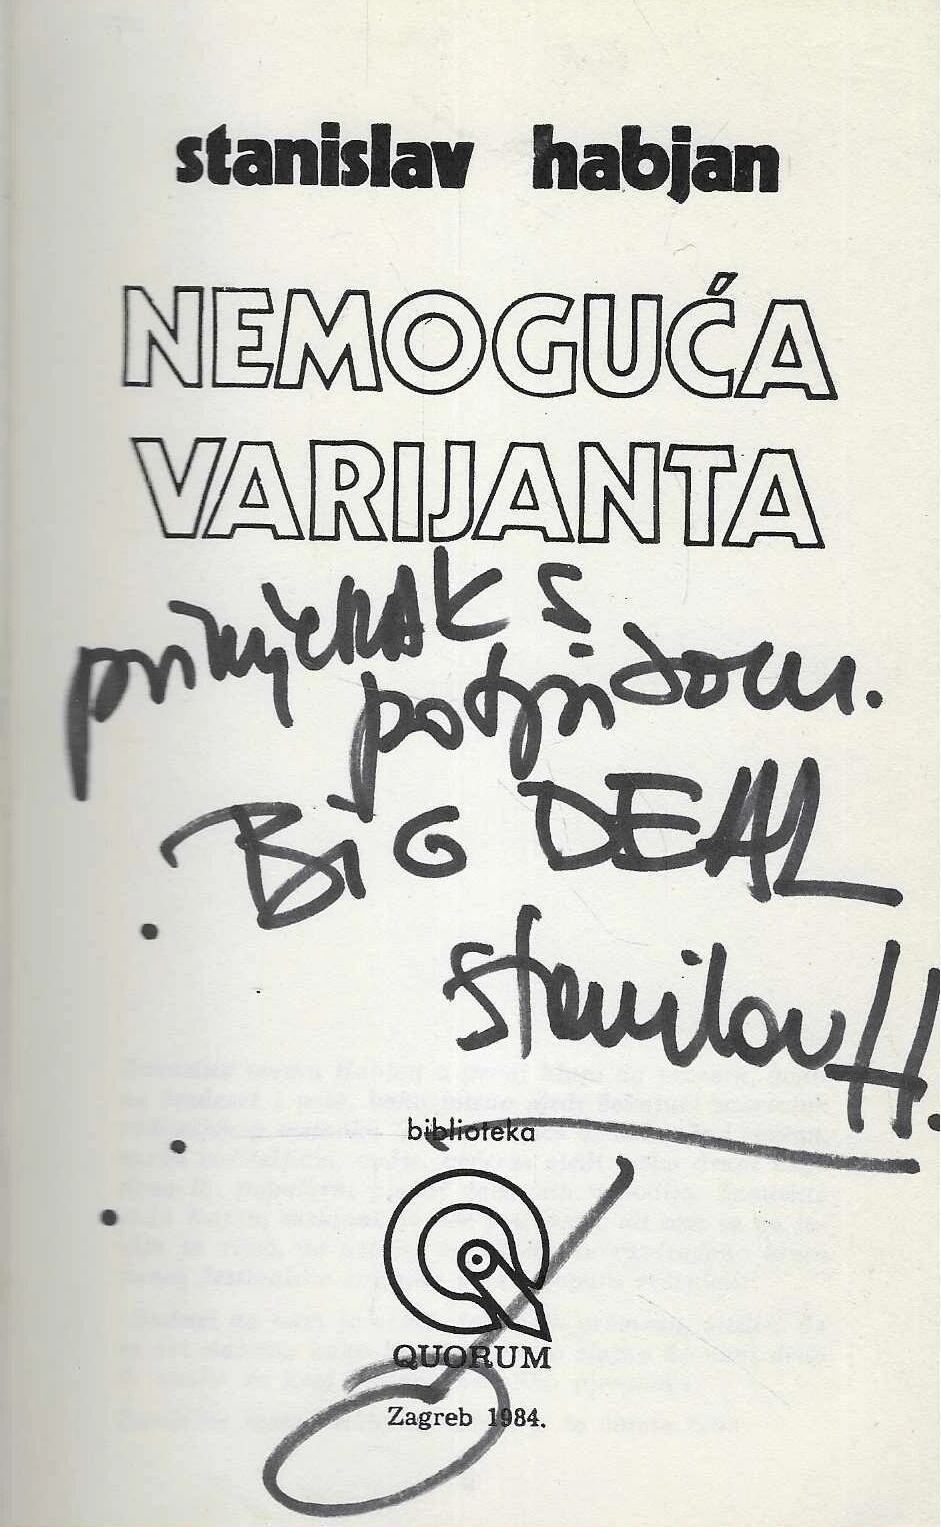 stanislav habjan
NEMOGUĆA
VARIJANTA
primjerak s
potpisom.
BiG DEAL
Stanislav H.
biblioteka
QUORUM
Zagreb 1984.